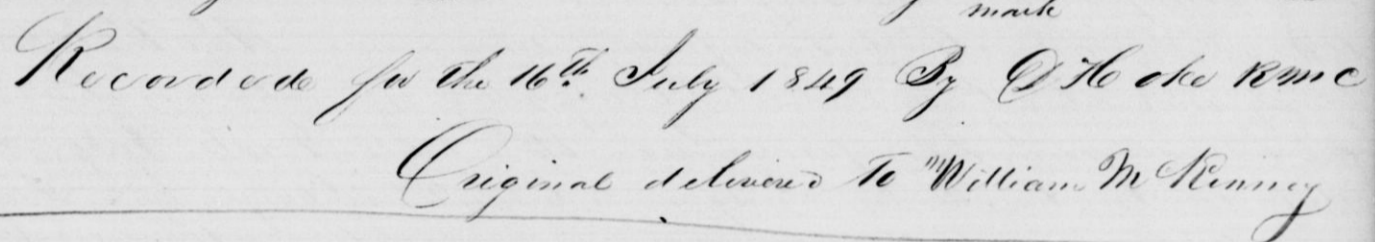 mark
Recorded for the 16th July 1849 By D Hoke RMC
Original delivered To William McKinney